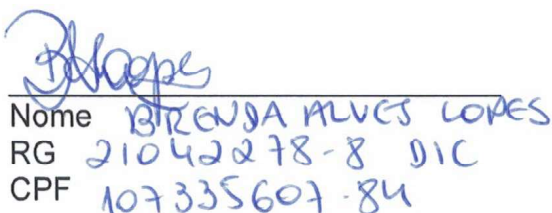 Nome BRENDA ALVES LOPES
RG 21042278-8 DIC
CPF 107335607-84